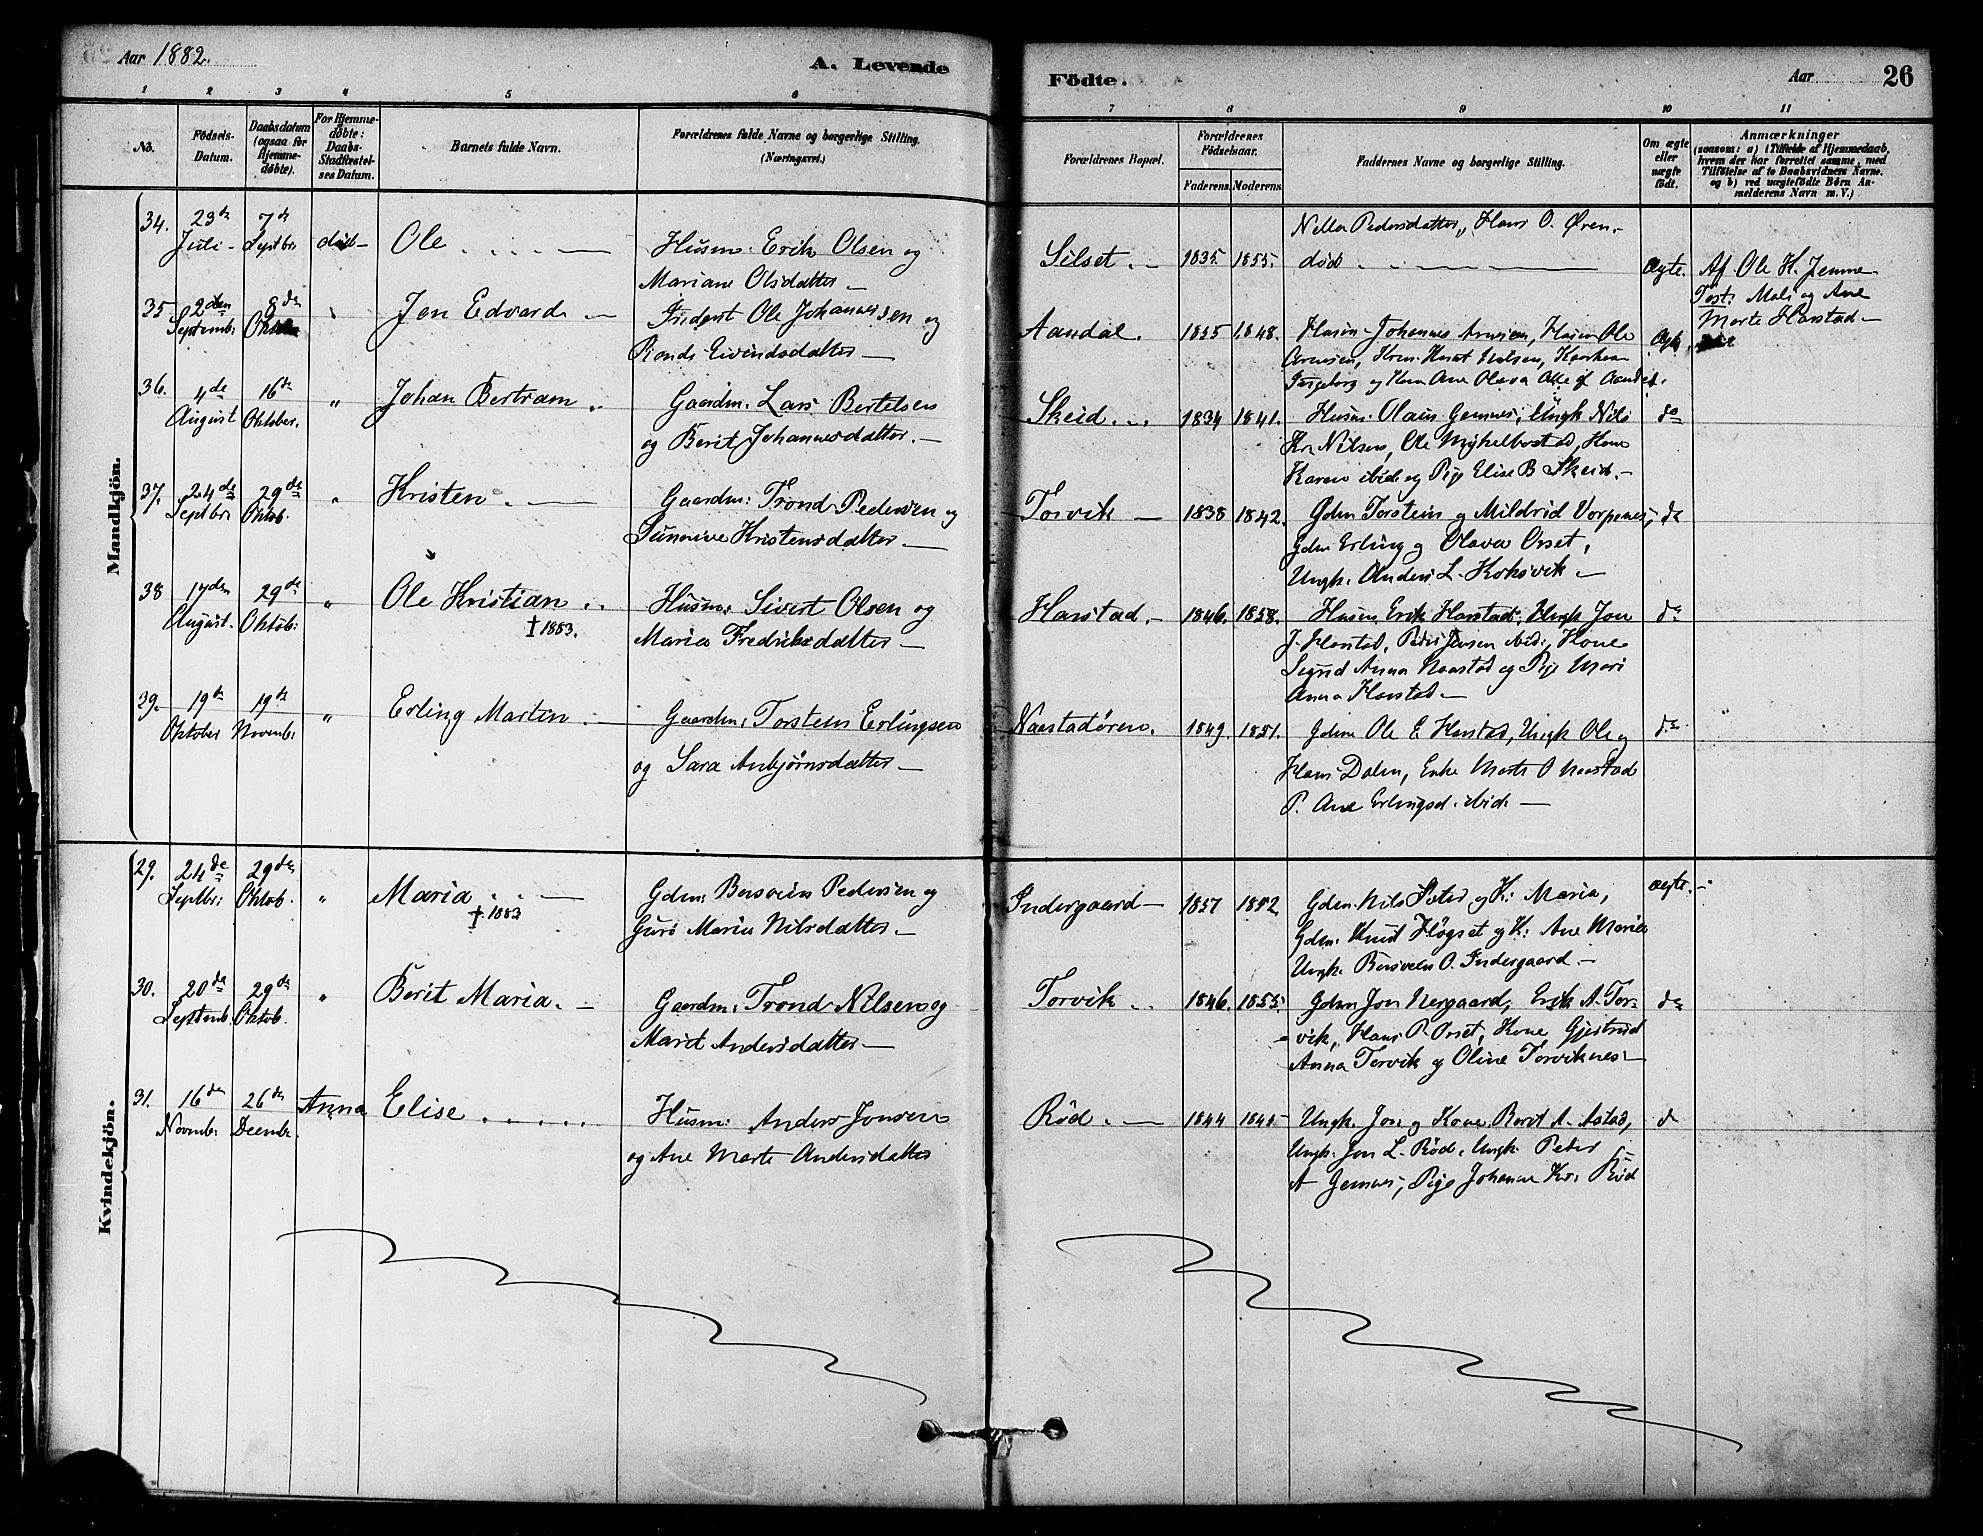 Aar 1882.
A. Levende
Födte.
Aar
26
1 2 3 4 5 6 7 8 9 10 11
No.
Födsels-Datum.
Daabsdatum (ogsaa for Hjemme-döbte).
For Hjemme-döbte: Daabs-Stadfæstel-ses Datum.
Barnets fulde Navn.
Forældrenes fulde Navne og borgerlige Stilling. (Næringsvei.)
Forældrenes Bopæl.
Forældrenes Födselsaar.
Faderens. Moderens.
Faddernes Navne og borgerlige Stilling.
Om ægte eller uægte födt.
Anmærkninger
(saasom: a) i Tilfælde af Hjemmedaab,
hvem der har forrettet samme, med
Tilföielse af to Daabsvidners Navne.
og b) ved uægtefödte Börn An-
melderens Navn m. V.)
Mandkjön.
34. 23de Juli 7de Septbr. död Ole
Husm: Erik Olsen og
Mariane Olsdatter
Silset 1835. 1855.
Nella Pedersdatter, Hans O. Øren
död
ægte.
Af Ole H. Jemne
Test: Mali og Ane
Marte Harstad
35 2den Septembr 8de Jon Edvard
Ole Johannessen og
Eivindsdatter
Aandal. 1848.
Johannes Husm Ole
Ingeborg og Kone Ane Olava Alle af
36. 4de August 16de Oktober. " Johan Bertram
Gaardm. Lars Bertelsen
og Berit Johannesdatter.
Skeid 1834 1841.
Husm. Olaus Gemnes, Ungk Nils
Kr. Nilsen, Ole Myhelbostad, Kone
Karen ibid og Pige Elise B Skeid.
do
37. 24de Septbr. 29de Oktob. " Kristen
Gaardm: Trond Pedersen og
Kristensdatter
Torvik 1838 1842.
Gdm Torstein og Mildrid Vorpenes,
Gdm Erling og Olava Orset,
Ungk. Anders L. Koksvik
do
38 17den August. 29de Oktob: " Ole Kristian
† 1883.
Husm Sivert Olsen og
Maria Fredriksdatter
Harstad 1846. 1858.
Husm Erik Harstad, Ungk Jon
J. Harstad, Peder Jensen ibid, Kone
Sigrid Anna Naastad og Pige Mari
Anna Harstad
do
39. 19de Oktober 19de Novembr " Erling Martin
Gaardm: Torstein Erlingsen
og Sara Anbjørnsdatter
Naastadøren. 1849. 1851.
Gdm Ole E Harstad, Ungk Ole og
Hans Dalen, Enke Marte O Naastad
P. Ane Erlingsd. ibid.
do
Kvindekjön.
29. 24de Septbr: 29de Oktob. " Maria
† 1883
Gdm: Bersvein Pedersen og
Guro Maria Nilsdatter
Indergaard 1857 1852
Gdm. Nils og K: Maria,
Gdm: Knud Høgset og K: Ane Maria
Ungk. Bersvein O. Indergaard
ægte.
30. 20de Septemb. 29de Oktob. " Berit Maria.
Gaardm: Trond Nilsen og
Marit Andersdatter
Torvik 1846. 1855.
Gdm Jon Nergaard, Erik A. Tor-
vik, Hans P. Orset, Kone Gjertrud
Anna Torvik og Oline Torviknes
do
31. 16de Novembr. 26de Decembr. Anna Elise
Husm: Anders Jonsen
og Ane Marte Andersdatter
Rød. 1844
Ungk. Jon og Kone Berit A. Astad,
Ungk. Jon L. Rød, Ungk. Peder
A Gemnes, Pige Johanne Kr. Rød
d